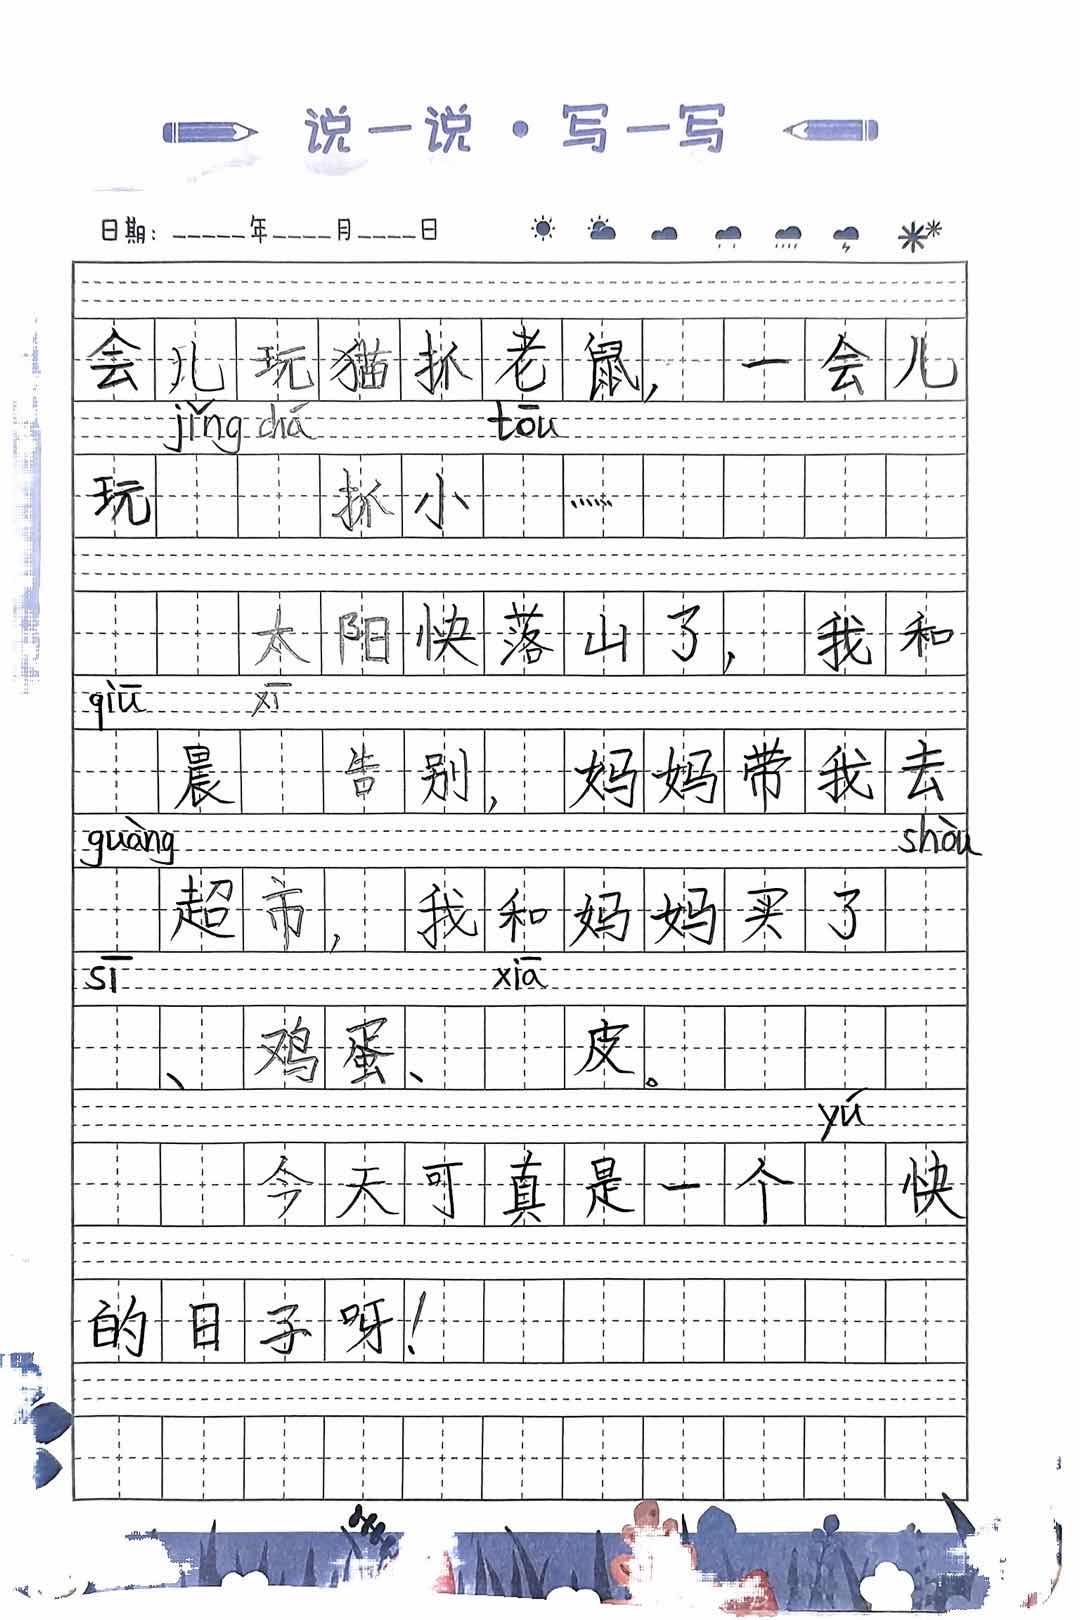 说一说·写一写
日期：_____年____月____日
会儿玩猫抓老鼠，一会儿
jǐng chá tōu
玩 抓小 ……
太阳快落山了，我和
qiū xī
晨 告别，妈妈带我去
guàng shòu
超市，我和妈妈买了
sī xiā
、鸡蛋、 皮。
yú
今天可真是一个 快
的日子呀！